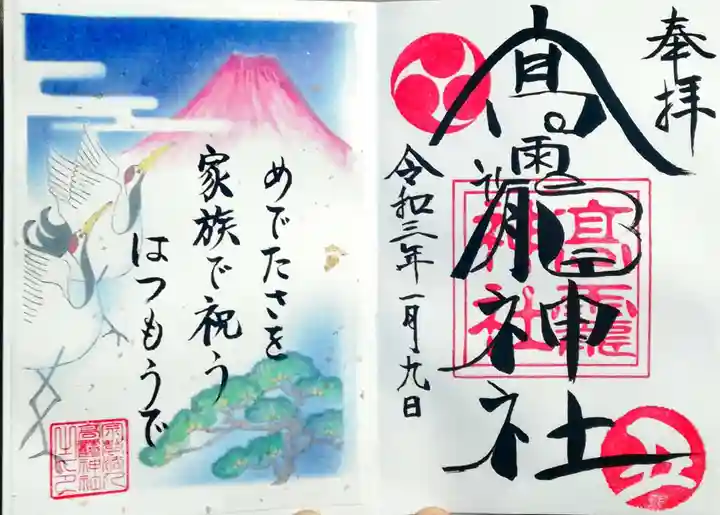 奉拝
高龗神社
高龗
神社
令和三年一月九日
丑
めでたさを
家族で祝う
はつもうで